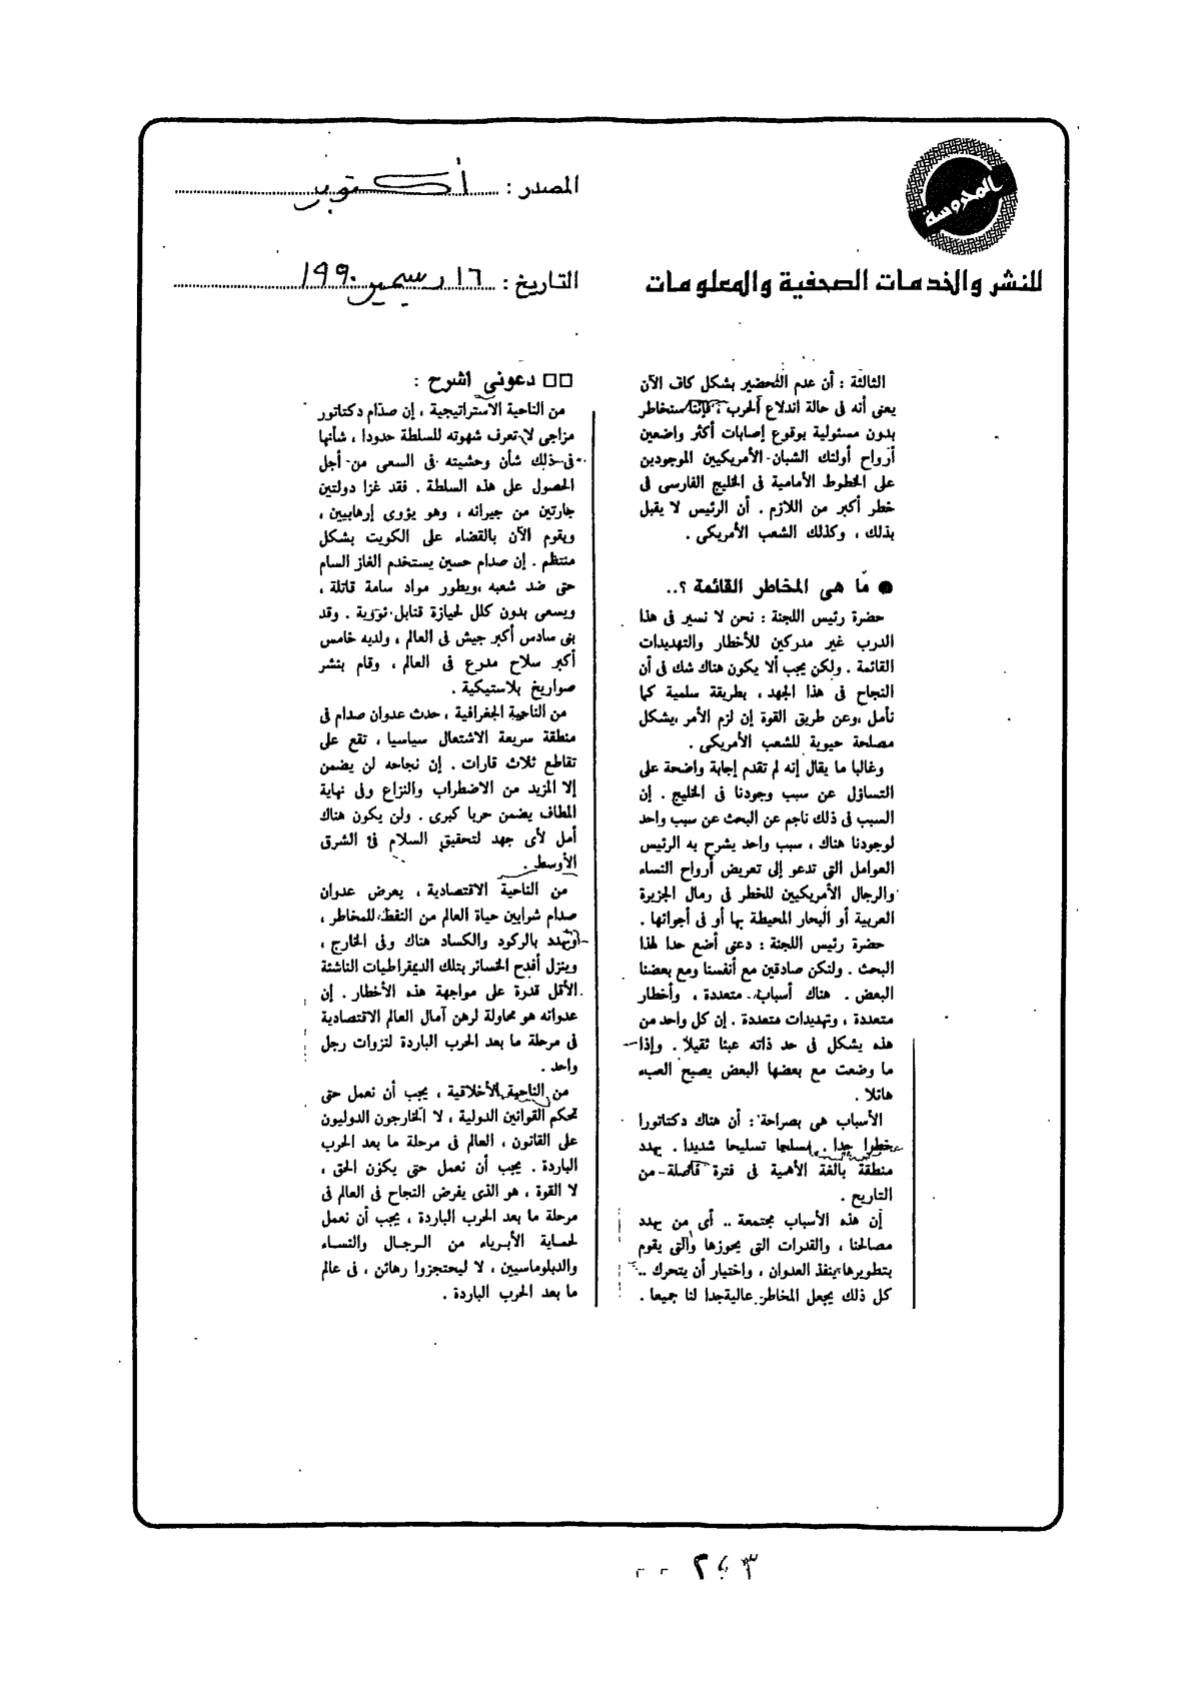 المحروسة
للنشر والخدمات الصحفية والمعلومات
المصدر : أكتوبر
التاريخ : ١٦ ديسمبر ١٩٩٠
الثالثة : أن عدم التحضير بشكل كاف الآن
يعنى أنه فى حالة اندلاع الحرب ، فإننا سنخاطر
بدون مسئولية بوقوع إصابات أكثر واضعين
أرواح أولئك الشبان الأمريكيين الموجودين
على الخطوط الأمامية فى الخليج الفارسى فى
خطر أكبر من اللازم . أن الرئيس لا يقبل
بذلك ، وكذلك الشعب الأمريكى .
● ما هى المخاطر القائمة ؟..
حضرة رئيس اللجنة : نحن لا نسير فى هذا
الدرب غير مدركين للأخطار والتهديدات
القائمة . ولكن يجب ألا يكون هناك شك فى أن
النجاح فى هذا الجهد ، بطريقة سلمية كما
نأمل ،وعن طريق القوة إن لزم الأمر ،يشكل
مصلحة حيوية للشعب الأمريكى .
وغالبا ما يقال إنه لم تقدم إجابة واضحة على
التساؤل عن سبب وجودنا فى الخليج . إن
السبب فى ذلك ناجم عن البحث عن سبب واحد
لوجودنا هناك ، سبب واحد يشرح به الرئيس
العوامل التى تدعو إلى تعريض أرواح النساء
والرجال الأمريكيين للخطر فى رمال الجزيرة
العربية أو البحار المحيطة بها أو فى أجوائها .
حضرة رئيس اللجنة : دعنى أضع حدا لهذا
البحث . ولنكن صادقين مع أنفسنا ومع بعضنا
البعض . هناك أسباب متعددة ، وأخطار
متعددة ، وتهديدات متعددة . إن كل واحد من
هذه يشكل فى حد ذاته عبئا ثقيلا . وإذا
ما وضعت مع بعضها البعض يصبح العبء
هائلا .
الأسباب هى بصراحة : أن هناك دكتاتورا
خطرا جدا . مسلحا تسليحا شديدا . يهدد
منطقة بالغة الأهمية فى فترة فاصلة من
التاريخ .
إن هذه الأسباب مجتمعة .. أى من يهدد
مصالحنا ، والقدرات التى يحوزها والتى يقوم
بتطويرها ينفذ العدوان ، واختيار أن يتحرك ..
كل ذلك يجعل المخاطر عالية جدا لنا جميعا .
□□ دعونى أشرح :
من الناحية الاستراتيجية ، إن صدام دكتاتور
مزاجى لا تعرف شهوته للسلطة حدودا ، شأنها
فى ذلك شأن وحشيته فى السعى من أجل
الحصول على هذه السلطة . فقد غزا دولتين
جارتين من جيرانه ، وهو يؤوى إرهابيين ،
ويقوم الآن بالقضاء على الكويت بشكل
منتظم . إن صدام حسين يستخدم الغاز السام
حتى ضد شعبه ،ويطور مواد سامة قاتلة ،
ويسعى بدون كلل لحيازة قنابل نووية . وقد
بنى سادس أكبر جيش فى العالم ، ولديه خامس
أكبر سلاح مدرع فى العالم ، وقام بنشر
صواريخ بلاستيكية .
من الناحية الجغرافية ، حدث عدوان صدام فى
منطقة سريعة الاشتعال سياسيا ، تقع على
تقاطع ثلاث قارات . إن نجاحه لن يضمن
إلا المزيد من الاضطراب والنزاع وفى نهاية
المطاف يضمن حربا كبرى . ولن يكون هناك
أمل لأى جهد لتحقيق السلام فى الشرق
الأوسط .
من الناحية الاقتصادية ، يعرض عدوان
صدام شرايين حياة العالم من النفط للمخاطر ،
ويهدد بالركود والكساد هناك وفى الخارج ،
وينزل أفدح الخسائر بتلك الديمقراطيات الناشئة
الأقل قدرة على مواجهة هذه الأخطار . إن
عدوانه هو محاولة لرهن آمال العالم الاقتصادية
فى مرحلة ما بعد الحرب الباردة لنزوات رجل
واحد .
من الناحية الأخلاقية ، يجب أن نعمل حتى
تحكم القوانين الدولية ، لا الخارجون الدوليون
على القانون ، العالم فى مرحلة ما بعد الحرب
الباردة . يجب أن نعمل حتى يكون الحق ،
لا القوة ، هو الذى يفرض النجاح فى العالم فى
مرحلة ما بعد الحرب الباردة ، يجب أن نعمل
لحماية الأبرياء من الرجال والنساء
والدبلوماسيين ، لا ليحتجزوا رهائن ، فى عالم
ما بعد الحرب الباردة .